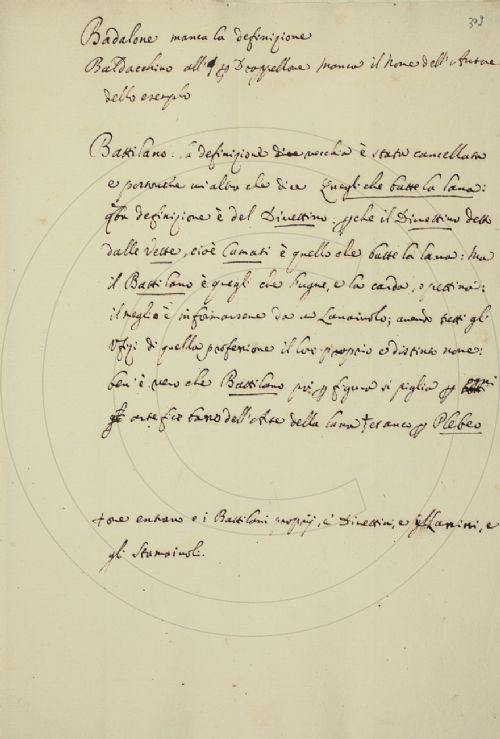 303
Badalone manca la definizione
Baldacchino all' Drappellone manca il nome dell'Autore
dello esempio
Battilano. la definizione vecchia è stata cancellata
e un'altra che dice Quegli che batte la lana:
definizione è del Divettino: che il Divettino detto
dalle Vette, cioè Camati è quello che batte la lana: Ma
il Battilano è quegli che hugne, e la carda, o pettina;
il meglio è informarsene da un Lanaiuolo; avendo tutti gli
Ufizi di quella professione il loro proprio e distinto nome:
ben' è vero che Battilano poi figura si piglia ogni
arte dell'Arte della lana + et anco Plebeo
+ ove entrano e i Battilani proprij, e Divettini, e e
gli Stamaiuoli.